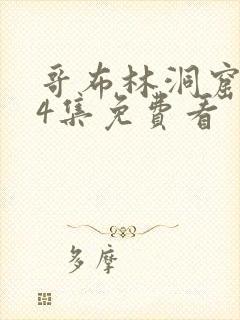 哥布林洞窟
4集免費看
多摩